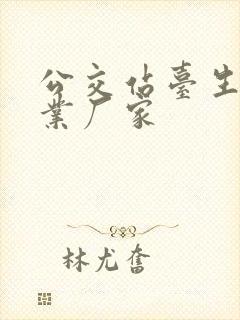 公交估臺生
業厂家
林尤奮